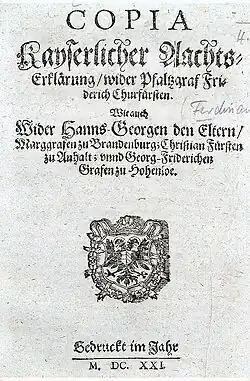 COPIA
Kayserlicher Aachts-
Erklärung/wider Pfaltzgraf Fri-
derich Churfürsten.
Wie auch
Wider Hanns-Georgen den Eltern/
Marggrafen zu Brandenburg: Christian Fürsten
zu Anhalt: vnnd Georg-Friderichen
Grafen zu Hohenloe.
Gedruckt im Jahr
M. DC. XXI.